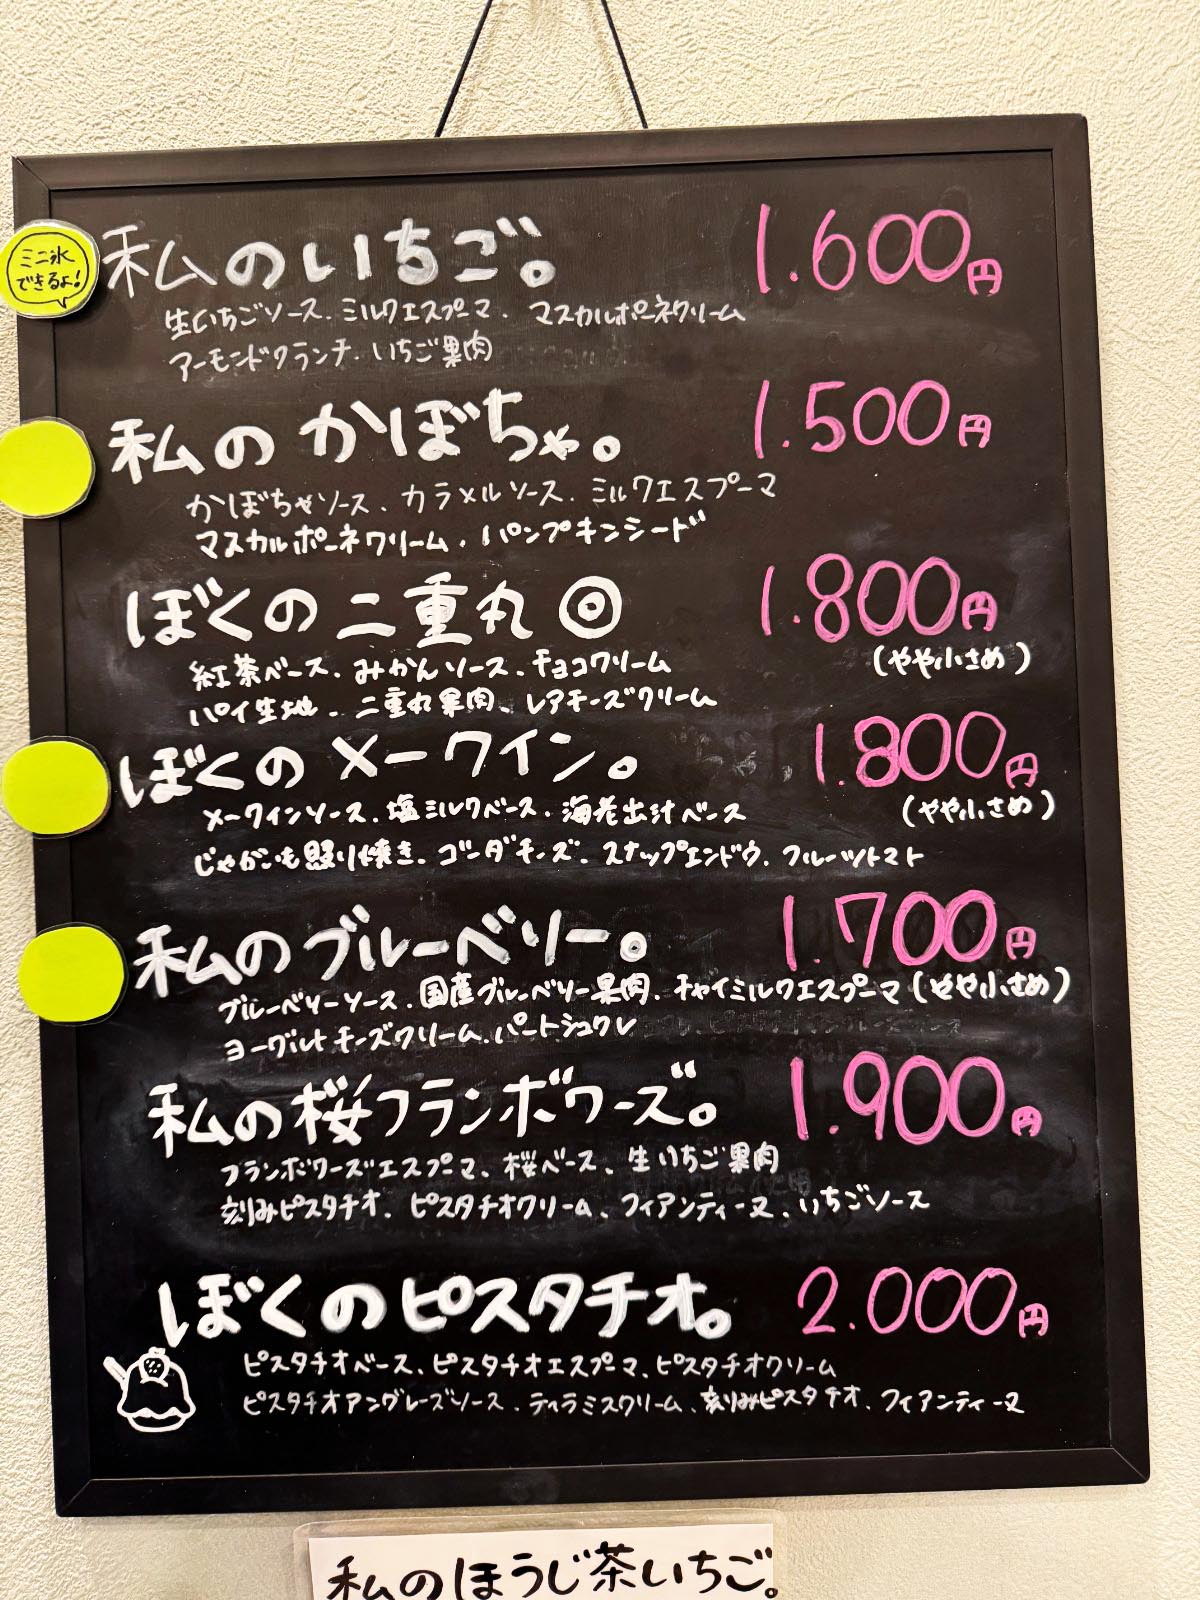 ミニ氷
できるよ!
私のいちご。 1.600円
生いちごソース、ミルクエスプーマ、マスカルポーネクリーム
アーモンドクランチ、いちご果肉
私のかぼちゃ。 1.500円
かぼちゃソース、カラメルソース、ミルクエスプーマ
マスカルポーネクリーム、パンプキンシード
ぼくの二重丸◎ 1.800円
紅茶ベース、みかんソース、チョコクリーム (やや小さめ)
パイ生地、二重丸果肉、レアチーズクリーム
ぼくのメークイン。 1.800円
メークインソース、塩ミルクベース、海老出汁ベース (やや小さめ)
じゃがいも照り焼き、ゴーダチーズ、スナップエンドウ、フルーツトマト
私のブルーベリー。 1.700円
ブルーベリーソース、国産ブルーベリー果肉、チャイミルクエスプーマ (やや小さめ)
ヨーグルトチーズクリーム、パートシュクレ
私の桜フランボワーズ。 1.900円
フランボワーズエスプーマ、桜ベース、生いちご果肉
刻みピスタチオ、ピスタチオクリーム、フィアンティーヌ、いちごソース
ぼくのピスタチオ。 2.000円
ピスタチオベース、ピスタチオエスプーマ、ピスタチオクリーム
ピスタチオアングレーズソース、ティラミスクリーム、刻みピスタチオ、フィアンティーヌ
私のほうじ茶いちご。